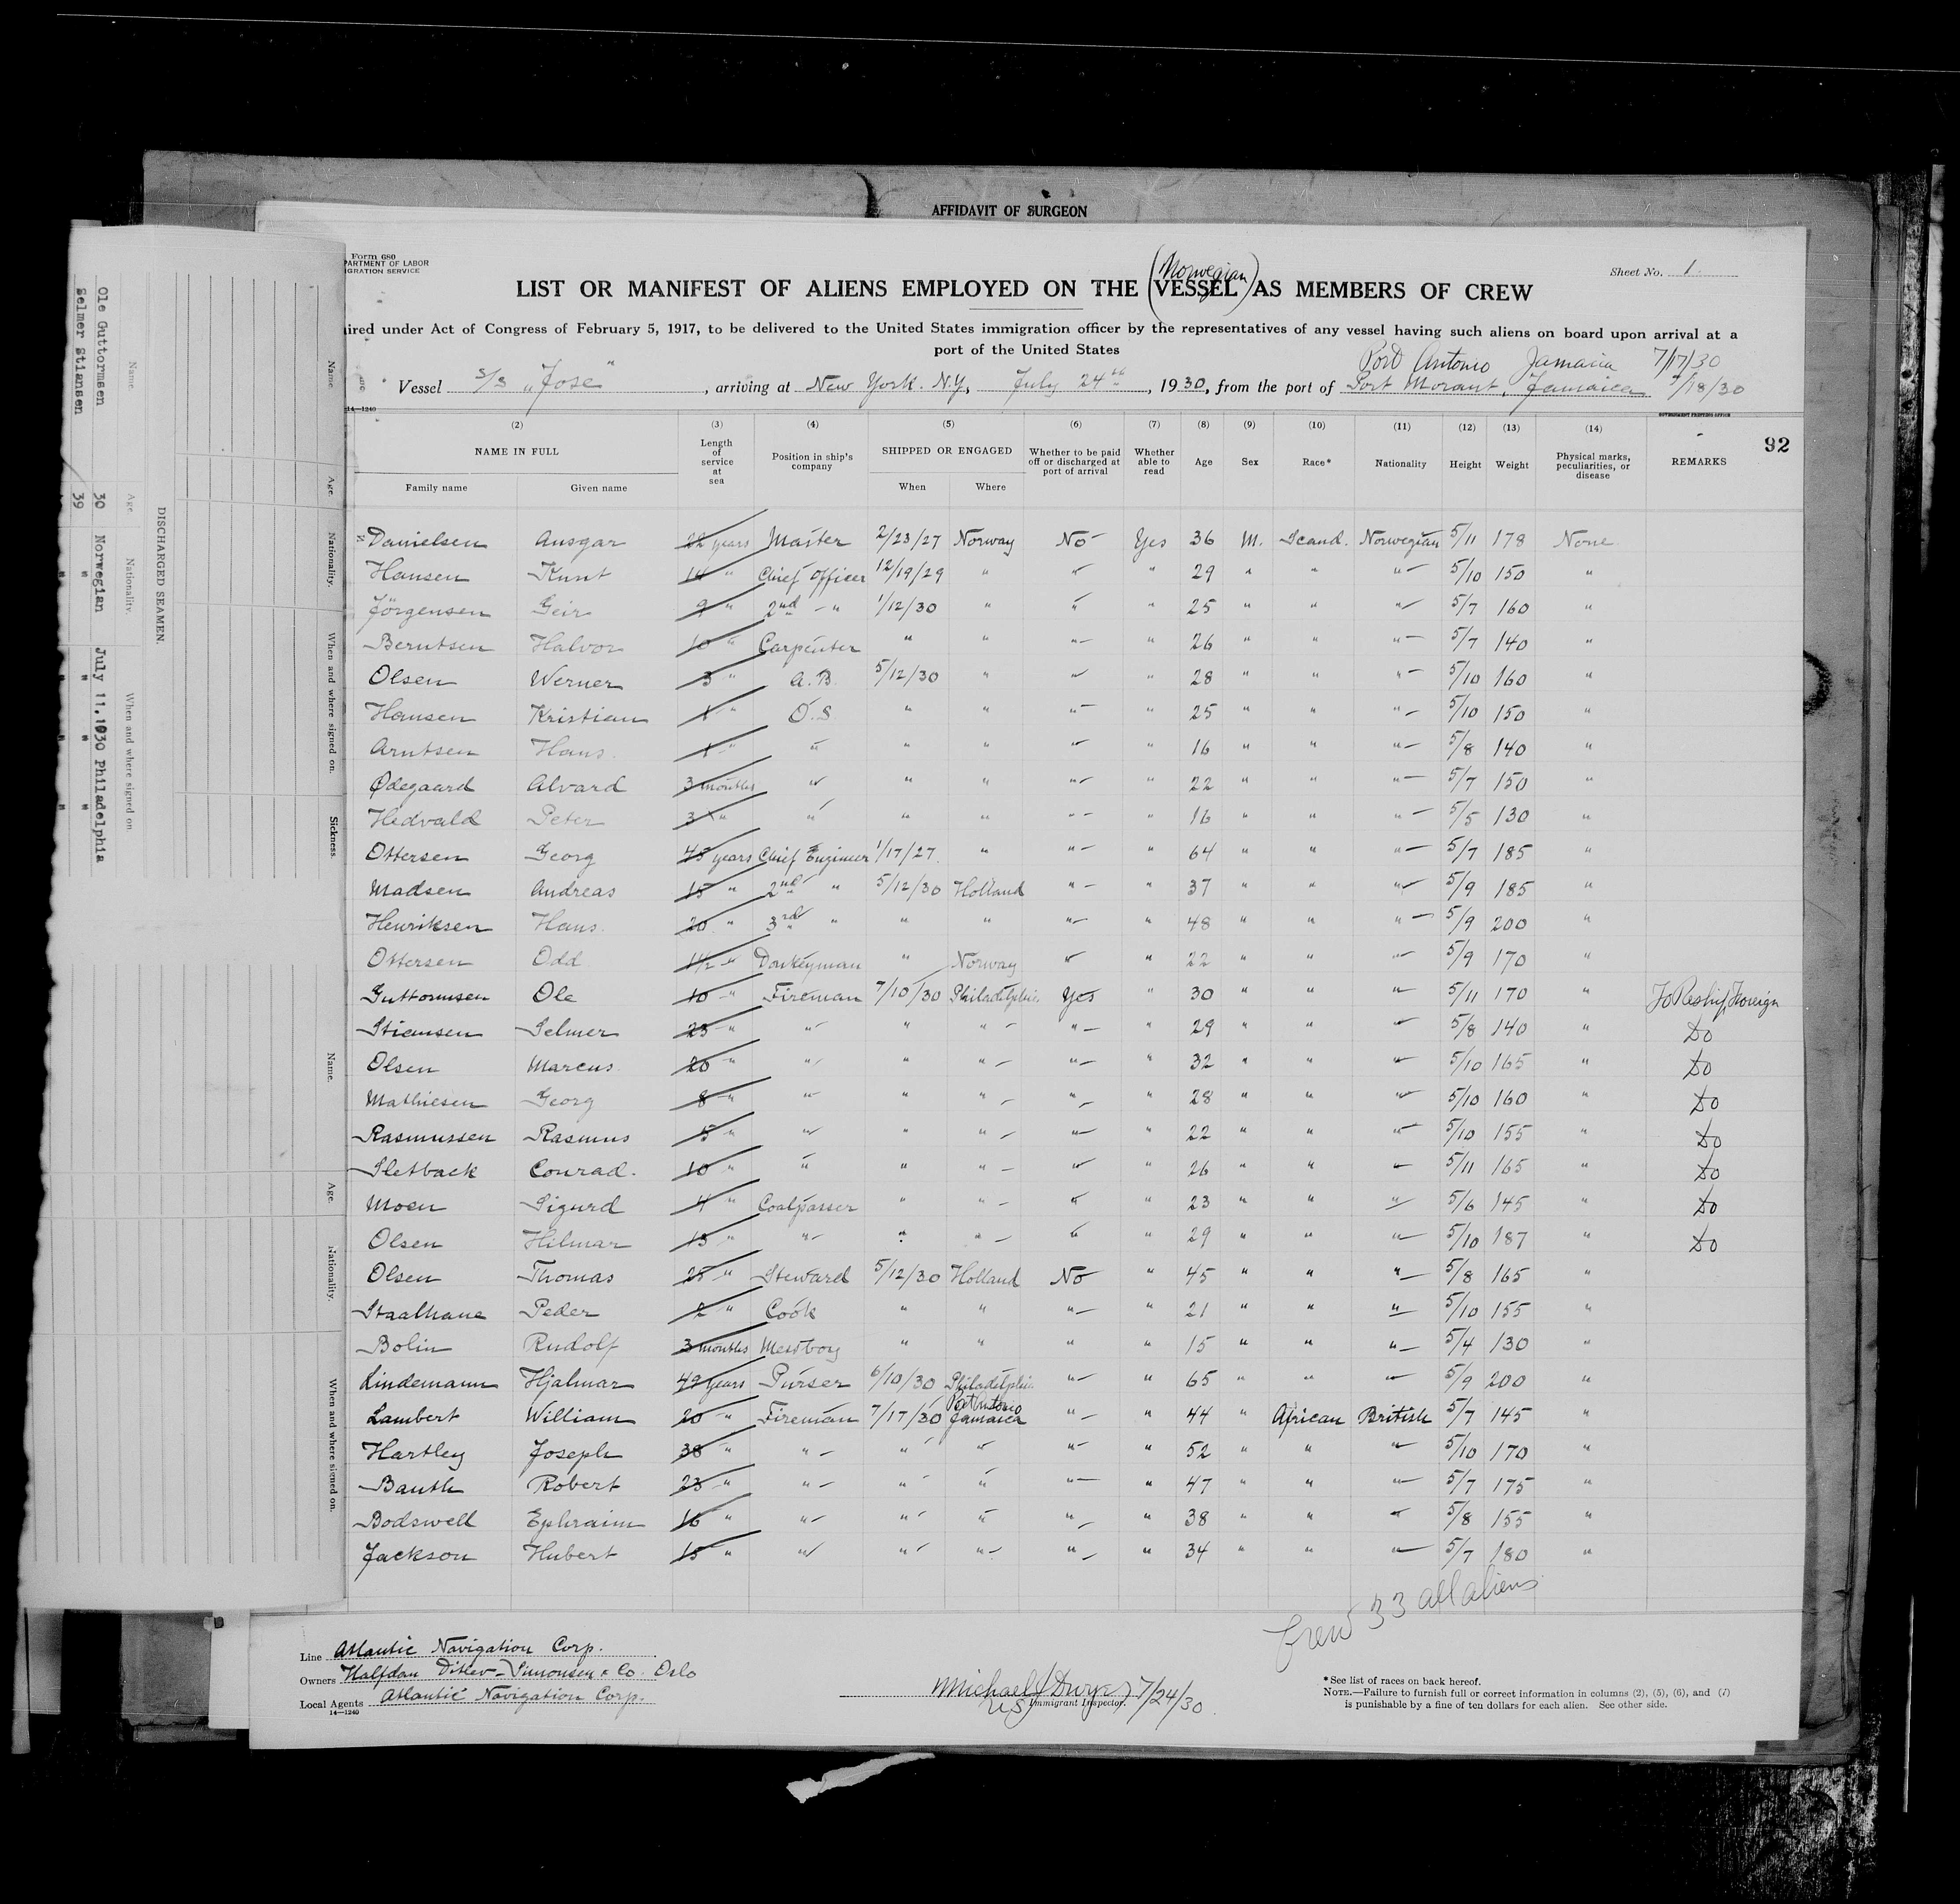 AFFIDAVIT OF SURGEON
Form 680
PARTMENT OF LABOR
IGRATION SERVICE
Sheet No. 1
(Norwegian)
LIST OR MANIFEST OF ALIENS EMPLOYED ON THE VESSEL AS MEMBERS OF CREW
ired under Act of Congress of February 5, 1917, to be delivered to the United States immigration officer by the representatives of any vessel having such aliens on board upon arrival at a
port of the United States
Port Antonio Jamaica 7/17/30
Vessel S/S "Jose", arriving at New York. N.Y., July 24th, 1930, from the port of Port Morant, Jamaica 7/18/30
14—1240
GOVERNMENT PRINTING OFFICE
92
(2) (3) (4) (5) (6) (7) (8) (9) (10) (11) (12) (13) (14)
NAME IN FULL Length of service at sea Position in ship's company SHIPPED OR ENGAGED Whether to be paid off or discharged at port of arrival Whether able to read Age Sex Race* Nationality Height Weight Physical marks, peculiarities, or disease REMARKS
Family name Given name When Where
Danielsen Ansgar 22 years Master 2/23/27 Norway No Yes 36 M. Scand. Norwegian 5/11 178 None
Hansen Knut 14 " Chief Officer 12/19/29 " " " 29 " " " 5/10 150 "
Jörgensen Geir 9 " 2nd " 1/12/30 " " " 25 " " " 5/7 160 "
Berntsen Halvor 10 " Carpenter " " " " 26 " " " 5/7 140 "
Olsen Werner 3 " A.B. 5/12/30 " " " 28 " " " 5/10 160 "
Hansen Kristian 1 " O.S " " " " 25 " " " 5/10 150 "
Arntsen Hans 1 " " " " " " 16 " " " 5/8 140 "
Ødegaard Alvard 3 months " " " " " 22 " " " 5/7 150 "
Hedvald Peter 3 " " " " " " 16 " " " 5/5 130 "
Ottersen Georg 45 years Chief Engineer 1/17/27 " " " 64 " " " 5/7 185 "
Madsen Andreas 15 " 2nd " 5/12/30 Holland " " 37 " " " 5/9 185 "
Henriksen Hans 20 " 3rd " " " " " 48 " " " 5/9 200 "
Ottersen Odd 1 1/2 " Donkeyman " Norway " " 22 " " " 5/9 170 "
Guttormsen Ole 10 " Fireman 7/10/30 Philadelphia Yes " 30 " " " 5/11 170 " To Reship Foreign
Stiansen Selmer 23 " " " " " " 29 " " " 5/8 140 " Do
Olsen Marcus 20 " " " " " " 32 " " " 5/10 165 " Do
Mathiesen Georg 8 " " " " " " 28 " " " 5/10 160 " Do
Rasmussen Rasmus 5 " " " " " " 22 " " " 5/10 155 " Do
Sletback Conrad. 10 " " " " " " 26 " " " 5/11 165 " Do
Moen Sigurd 4 " Coalpasser " " " " 23 " " " 5/6 145 " Do
Olsen Hilmar 13 " " " " " " 29 " " " 5/10 187 " Do
Olsen Thomas 25 " Steward 5/12/30 Holland No " 45 " " " 5/8 165 "
Staalhane Peder 2 " Cook " " " " 21 " " " 5/10 155 "
Bolin Rudolf 3 months Messboy " " " " 15 " " " 5/4 130 "
Lindemann Hjalmar 49 years Purser 6/10/30 Philadelphia " " 65 " " " 5/9 200 "
Lambert William 20 " Fireman 7/17/30 Port Antonio Jamaica " " 44 " African British 5/7 145 "
Hartley Joseph 38 " " " " " " 52 " " " 5/10 170 "
Bauth Robert 23 " " " " " " 47 " " " 5/7 175 "
Bodswell Ephraim 16 " " " " " " 38 " " " 5/8 155 "
Jackson Hubert 15 " " " " " " 34 " " " 5/7 180 "
Crew 33 all aliens
Line Atlantic Navigation Corp.
Owners Halfdan Ditlev-Simonsen & Co. Oslo
Local Agents Atlantic Navigation Corp.
14—1240
Michael J Dwyer 7/24/30
US Immigrant Inspector.
*See list of races on back hereof.
NOTE.—Failure to furnish full or correct information in columns (2), (5), (6), and (7)
is punishable by a fine of ten dollars for each alien. See other side.
DISCHARGED SEAMEN.
Name. Age. Nationality. When and where signed on.
Ole Guttormsen 30 Norwegian July 11.1930 Philadelphia
Selmer Stiansen 39 " " " "
Name. Age. Nationality. When and where signed on. Sickness.
Name. Age. Nationality. When and where signed on.